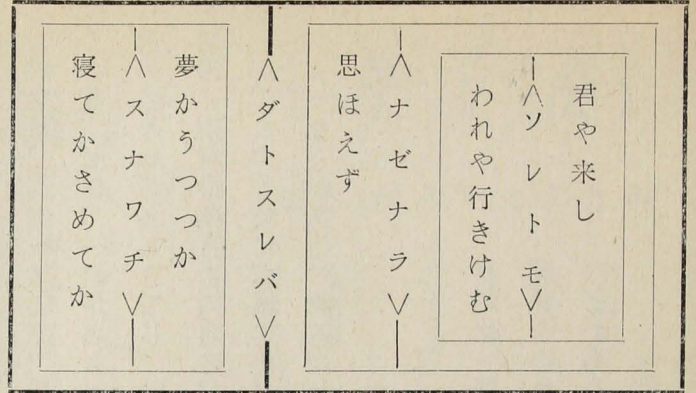 君や来し
〈ソレトモ〉
われや行きけむ
〈ナゼナラ〉
思ほえず
〈ダトスレバ〉
夢かうつつか
〈スナワチ〉
寝てかさめてか